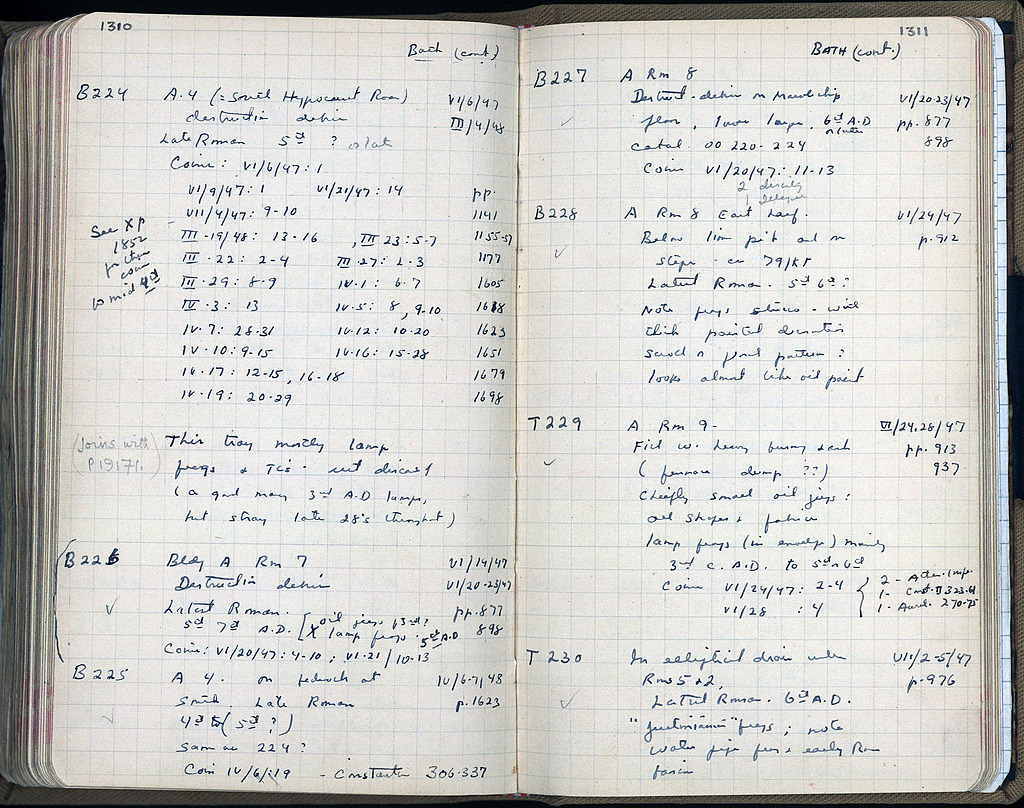 1310
Bath (cont)
B224 A.4 (= South Hypocaust Room) VI/6/47
destruction debris III/4/48
Late Roman 5th ? or late
Coins: VI/6/47: 1
VI/9/47: 1 VI/21/47: 14 pp.
VII/4/47: 9-10 1141
III-19/48: 13-16, III 23: 5-7 1155-57
III-22: 2-4 III-27: 2-3 1177
III-29: 8-9 IV-1: 6-7 1605
IV-3: 13 IV-5: 8, 9-10 1618
IV-7: 28-31 IV-12: 10-20 1623
IV-10: 9-15 IV-16: 15-28 1651
IV-17: 12-15, 16-18 1679
IV-19: 20-29 1698
See Xp
1852
for the
coin
to mid 4th
(Joins with
P 19171.)
This tray mostly lamp
frags & TCs - not discard
(a good many 3rd A.D lamps,
but stray late 28's throughout)
B226 Bldg A Rm 7 VI/14/47
Destruction debris VI/20-23/47
Latest Roman. pp. 877
5th 7th A.D. [oil jugs 3rd? 898
X lamp frags. 5th A.D
Coins: VI/20/47: 4-10; VI-21/10-13
B225 A 4. on at IV/6-7/48
South. Late Roman p. 1623
4th to (5th ?)
Same as 224?
Coin IV/6/:19 - Constantin 306-337
1311
BATH (cont.)
B227 A Rm 8
Destruct. debris on Marble chip VI/20-23/47
floor, lower layer. 6th A.D or later pp. 877
catal. 00 220-224 898
Coins VI/20/47: 11-13
2
1 illegible
B228 A Rm 8 East half. VI/24/47
Below lime pit and on p. 912
steps - ca 79/ΚΓ
Latest Roman. 5th 6th?
Note frags stucco - with
thick painted decoration
scroll or floral pattern?
looks almost like oil paint
T229 A Rm 9- VI/24,28/47
Fill w. heavy burning & ash pp. 913
(furnace dump ??) 937
Chiefly small oil jugs:
all shapes & fabrics
lamp frags (in envelope) mainly
3rd c. A.D. to 5th or 6th
Coins VI/24/47: 2-4 { 2 - Athen. Imp.
VI/28 : 4 1 - Const. II 323-61
1 - Aurel. 270-75
T 230 In elliptical drain under VII/2-5/47
Rms 5 & 2, p. 976
Latest Roman. 6th A.D.
"Justinianic" frags; note
Water pipe frags early Rom
basin